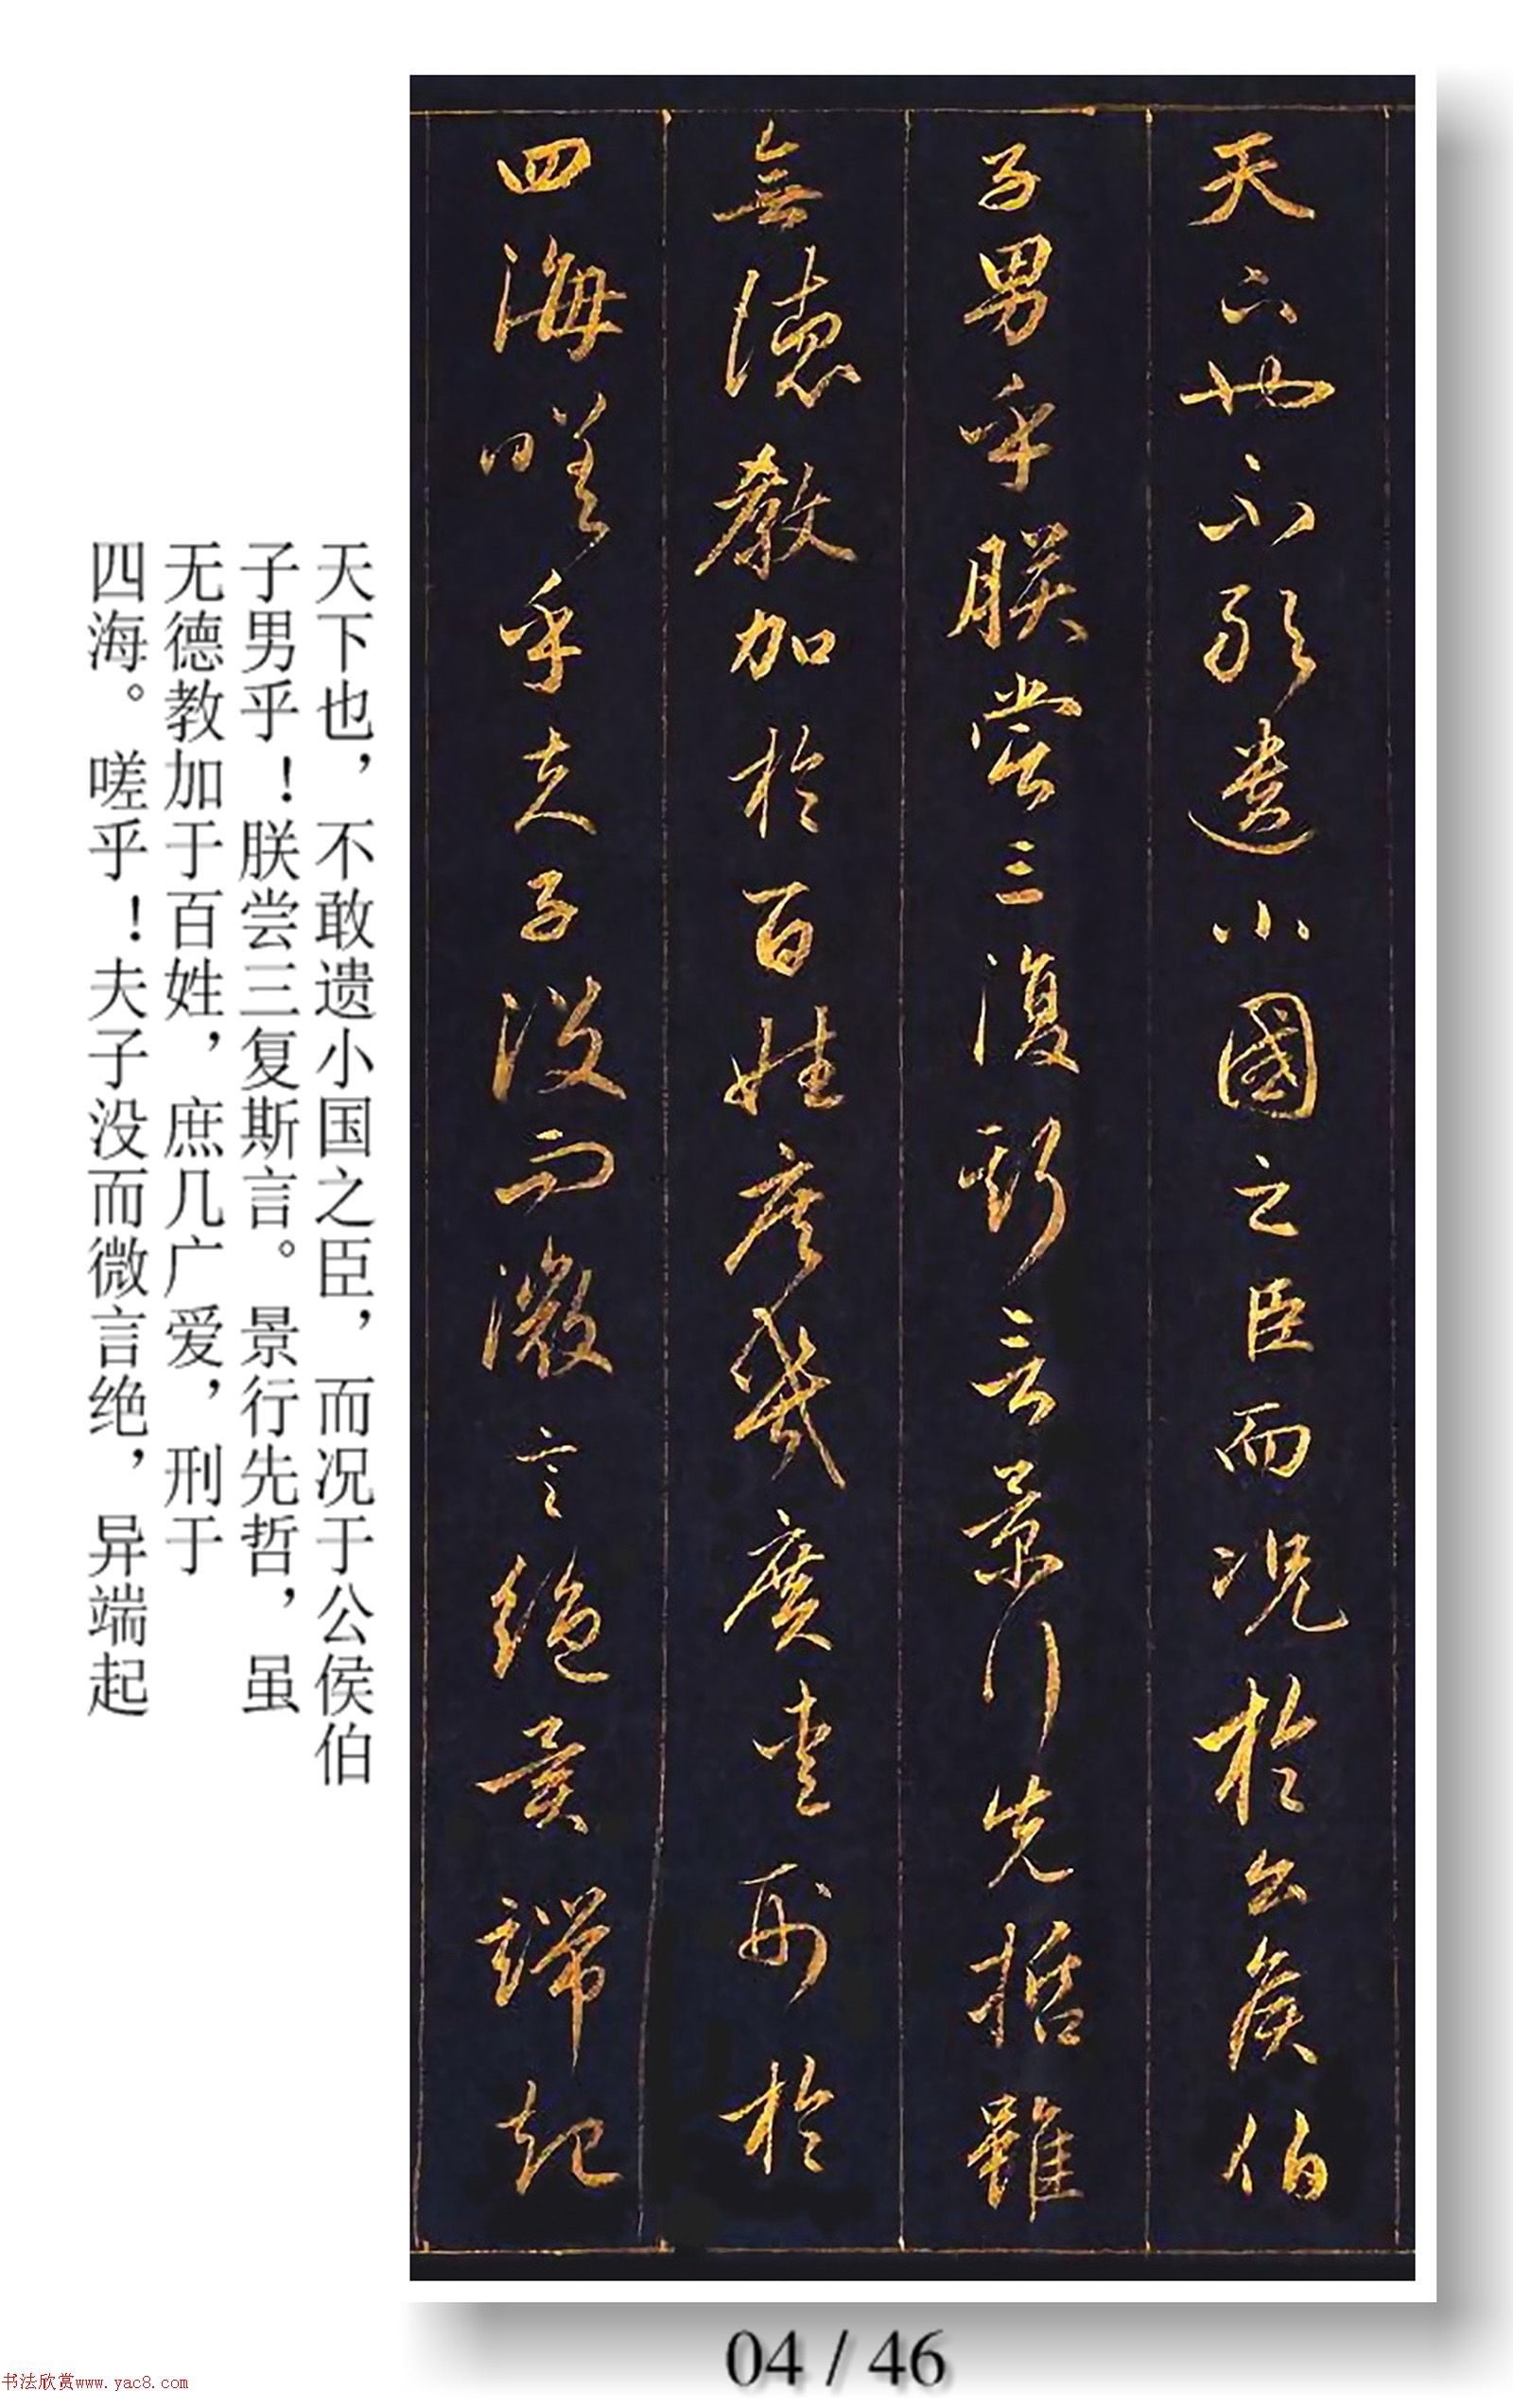 天下也不敢遺小國之臣而况於公侯伯
子男乎朕嘗三復斯言景行先哲雖
無德教加於百姓庶幾廣愛刑於
四海嗟乎夫子没而微言絶異端起
天下也，不敢遗小国之臣，而况于公侯伯
子男乎！朕尝三复斯言。景行先哲，虽
无德教加于百姓，庶几广爱，刑于
四海。嗟乎！夫子没而微言绝，异端起
04 / 46
书法欣赏www.yac8.com